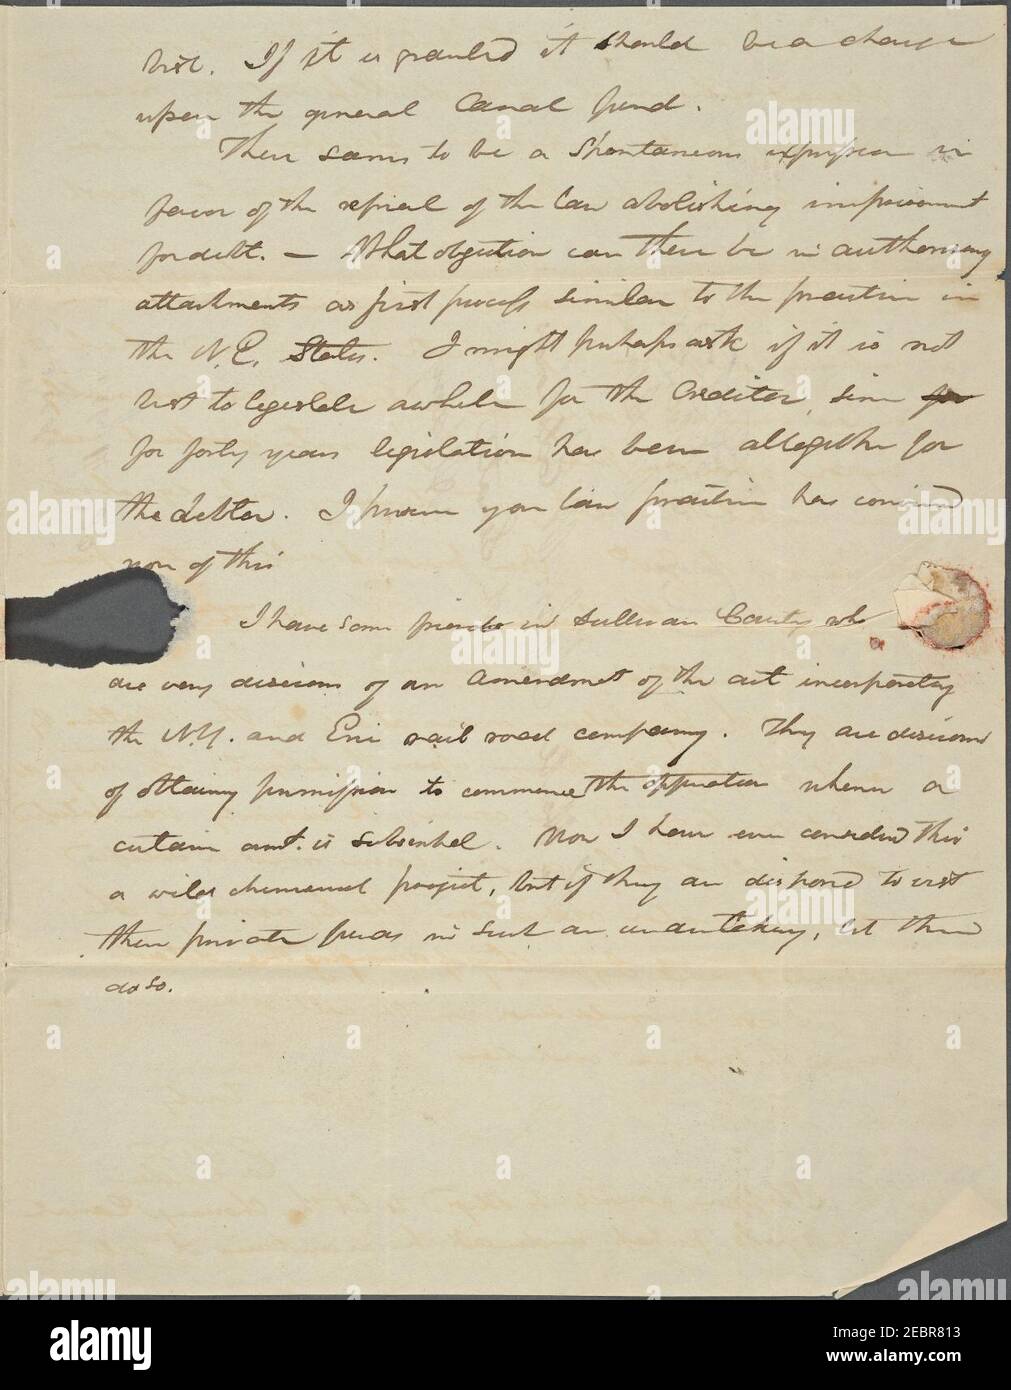 best. If it is granted it should be a charge
upon the general Canal fund.
There seems to be a spontaneous expression in
favor of the repeal of the law abolishing imprisonment
for debt. — What objection can there be in authorising
attachments as first process similar to the practice in
the N.E. States. I might perhaps ask if it is not
best to legislate awhile for the Creditor, since for
for forty years legislation has been altogether for
the debtor. I presume your law practice has convinced
you of this
I have some friends in Sullivan County who
are very desirous of an amendment of the act incorporating
the N.Y. and Erie rail road company. They are desirous
of obtaining permission to commence the opperation when a
certain amt. is subscribed. Now I have ever considered this
a wild chimerical project, but if they are disposed to vest
their private funds in such an undertaking, let them
do so.
alamy
a
Image ID: 2EBR813
www.alamy.com